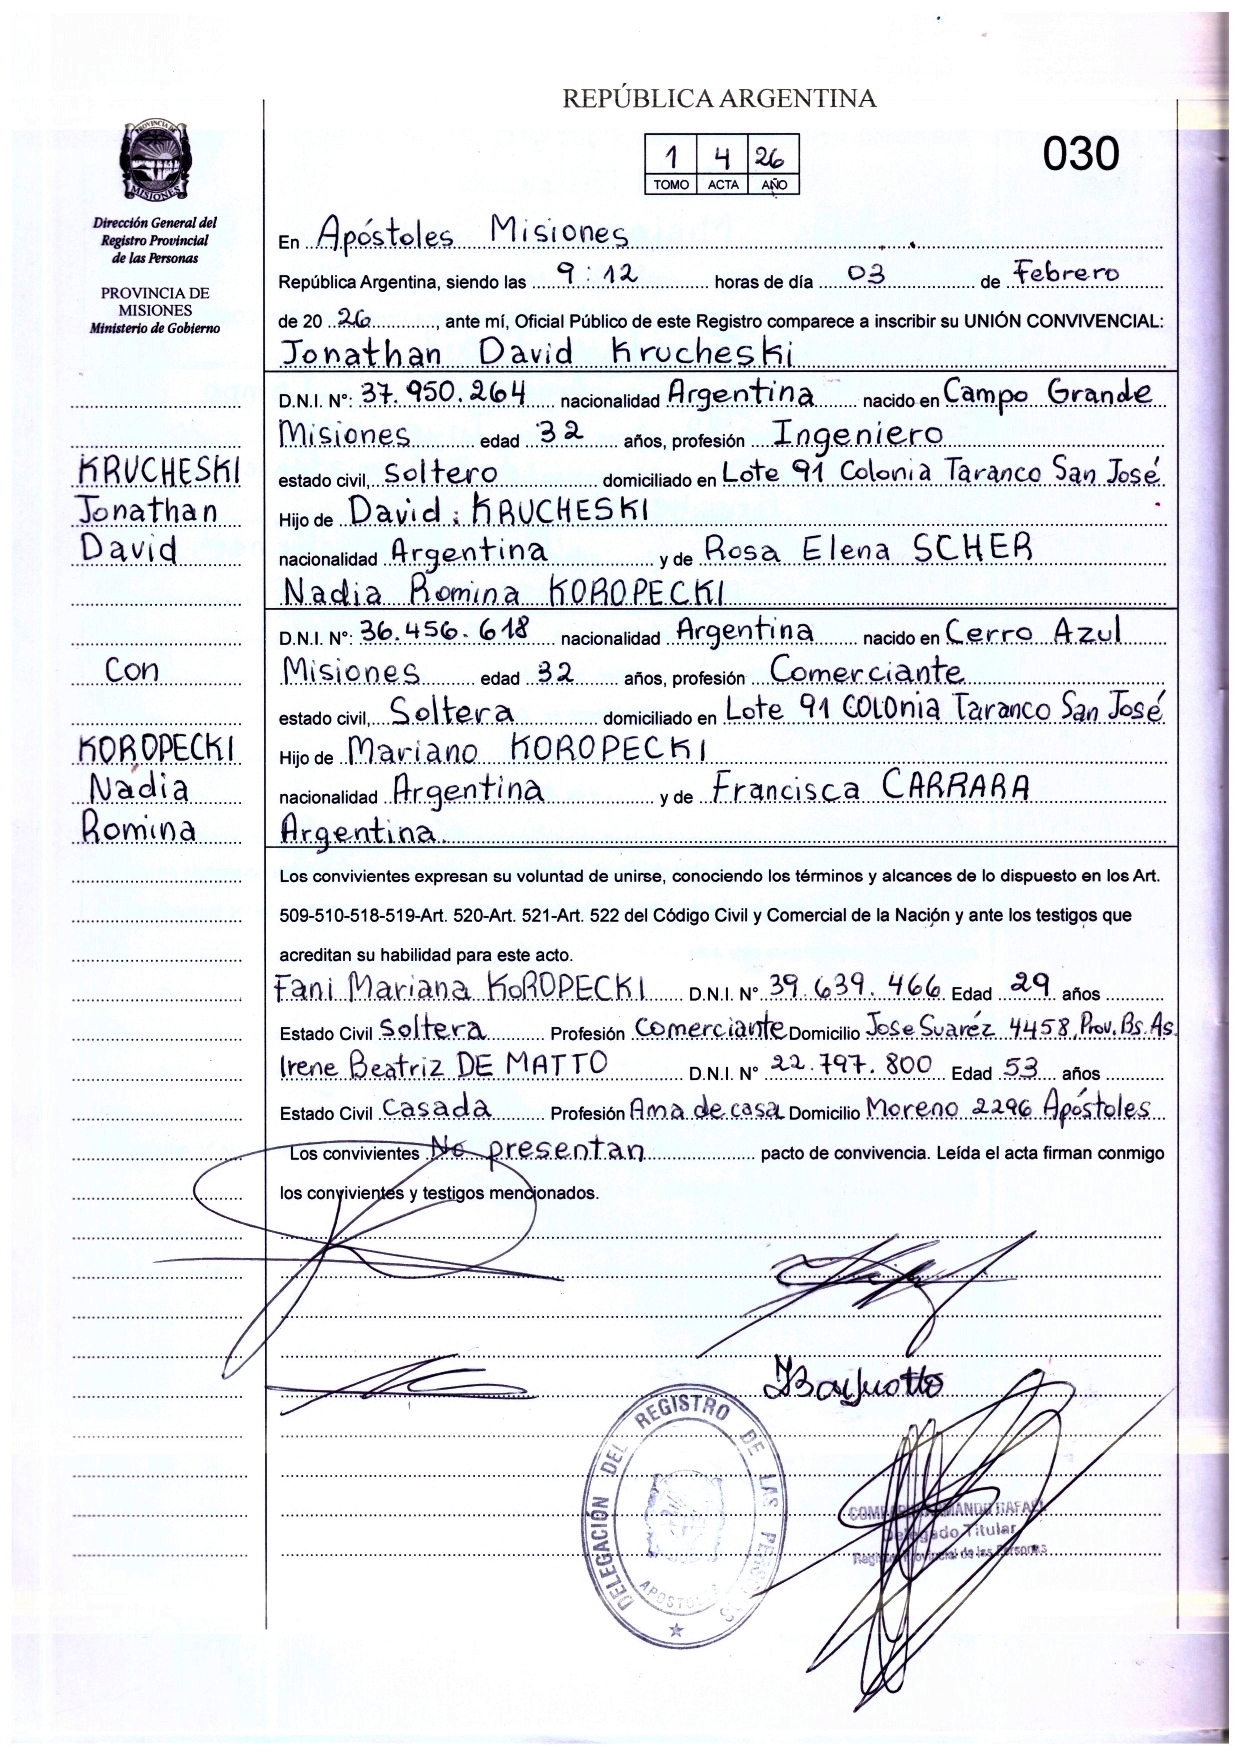 REPÚBLICA ARGENTINA
PROVINCIA DE
MISIONES
1 4 26
TOMO ACTA AÑO
030
Dirección General del
Registro Provincial
de las Personas
PROVINCIA DE
MISIONES
Ministerio de Gobierno
En Apóstoles Misiones
República Argentina, siendo las 9:12 horas de día 03 de Febrero
de 20 26, ante mí, Oficial Público de este Registro comparece a inscribir su UNIÓN CONVIVENCIAL:
Jonathan David Krucheski
D.N.I. Nº: 37.950.264 nacionalidad Argentina nacido en Campo Grande
Misiones edad 32 años, profesión Ingeniero
estado civil, Soltero domiciliado en Lote 91 Colonia Taranco San José
Hijo de David KRUCHESKI
nacionalidad Argentina y de Rosa Elena SCHER
Nadia Romina KOROPECKI
D.N.I. Nº: 36.456.618 nacionalidad Argentina nacido en Cerro Azul
Misiones edad 32 años, profesión Comerciante
estado civil, Soltera domiciliado en Lote 91 COLOnia Taranco San José
Hijo de Mariano KOROPECKI
nacionalidad Argentina y de Francisca CARRARA
Argentina.
KRUCHESKI
Jonathan
David
Con
KOROPECKI
Nadia
Romina
Los convivientes expresan su voluntad de unirse, conociendo los términos y alcances de lo dispuesto en los Art.
509-510-518-519-Art. 520-Art. 521-Art. 522 del Código Civil y Comercial de la Nación y ante los testigos que
acreditan su habilidad para este acto.
Fani Mariana KoROPECKI D.N.I. Nº 39.639.466 Edad 29 años
Estado Civil Soltera Profesión Comerciante Domicilio Jose Suaréz 4458, Prov. Bs. As.
Irene Beatriz DE MATTO D.N.I. Nº 22.797.800 Edad 53 años
Estado Civil Casada Profesión Ama de casa Domicilio Moreno 2296 Apóstoles
Los convivientes No presentan pacto de convivencia. Leída el acta firman conmigo
los convivientes y testigos mencionados.
DELEGACIÓN DEL REGISTRO DE LAS PERSONAS
APOSTOLES
RAFAEL
Delegado Titular
Registro Provincial de las Personas